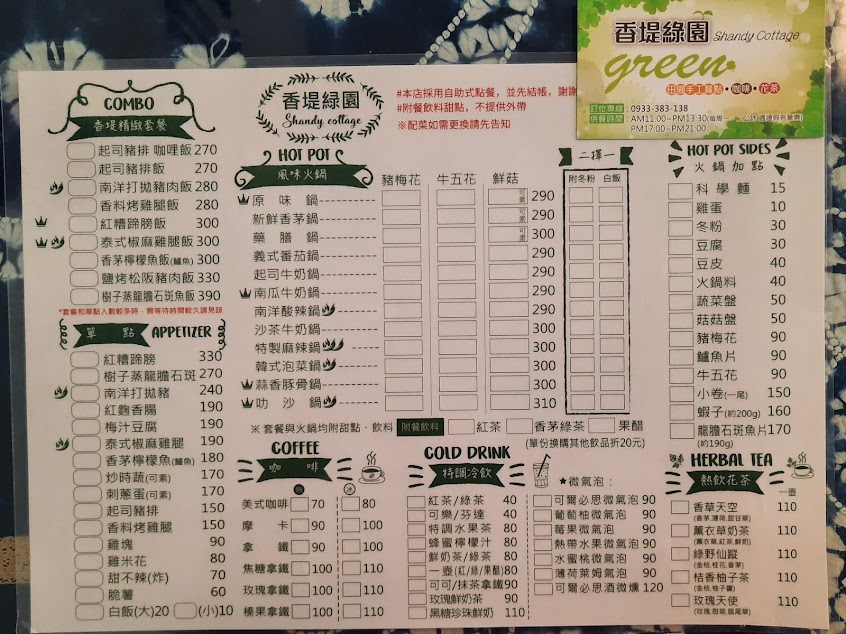 香堤綠園 Shandy Cottage
green
田園手工餐點•咖啡•花茶
訂位專線：0933-383-138
供餐時間：AM11:00~PM13:30
PM17:00~PM21:00
COMBO
香堤精緻套餐
起司豬排 咖哩飯 270
起司豬排飯 270
南洋打拋豬肉飯 280
香料烤雞腿飯 280
紅糟蹄膀飯 300
泰式椒麻雞腿飯 300
香茅檸檬魚飯(鱸魚) 300
鹽烤松阪豬肉飯 330
樹子蒸龍膽石斑魚飯 390
*套餐和單點人數較多時，需等待時間較久請見諒
單 點 APPETIZER
紅糟蹄膀 330
樹子蒸龍膽石斑 270
南洋打拋豬 240
紅麴香腸 190
梅汁豆腐 190
泰式椒麻雞腿 190
香茅檸檬魚(鱸魚) 180
炒時蔬(可素) 170
刺蔥蛋(可素) 170
起司豬排 150
香料烤雞腿 150
雞塊 90
雞米花 80
甜不辣(炸) 70
脆薯 60
白飯(大)20 (小)10
香堤綠園
Shandy cottage
#本店採用自助式點餐，並先結帳，謝謝
#附餐飲料甜點，不提供外帶
※配菜如需更換請先告知
HOT POT
風味火鍋
豬梅花 牛五花 鮮菇
二擇一
附冬粉 白飯
原 味 鍋 可素 290
新鮮香茅鍋 可素 290
藥 膳 鍋 可素 300
義式番茄鍋 290
起司牛奶鍋 290
南瓜牛奶鍋 290
南洋酸辣鍋 300
沙茶牛奶鍋 300
特製麻辣鍋 300
韓式泡菜鍋 300
蒜香豚骨鍋 300
叻 沙 鍋 310
※套餐與火鍋均附甜點、飲料 附餐飲料 紅茶 香茅綠茶 果醋
(單份換購其他飲品折20元)
COFFEE
咖 啡
美式咖啡 70 80
摩 卡 90 100
拿 鐵 90 100
焦糖拿鐵 100 110
玫瑰拿鐵 100 110
榛果拿鐵 100 110
COLD DRINK
特調冷飲
紅茶/綠茶 40
可樂/芬達 40
特調水果茶 80
蜂蜜檸檬汁 80
鮮奶茶/綠茶 80
一壺(紅/綠/果醋) 80
可可/抹茶拿鐵 90
玫瑰鮮奶茶 90
黑糖珍珠鮮奶 110
★微氣泡：
可爾必思微氣泡 90
葡萄柚微氣泡 90
莓果微氣泡 90
熱帶水果微氣泡 90
水蜜桃微氣泡 90
薄荷萊姆氣泡 90
可爾必思酒微燻 120
HOT POT SIDES
火鍋加點
科 學 麵 15
雞蛋 10
冬粉 30
豆腐 30
豆皮 40
火鍋料 40
蔬菜盤 50
菇菇盤 50
豬梅花 90
鱸魚片 90
牛五花 90
小卷(一尾) 150
蝦子(約200g) 160
龍膽石斑魚片 170
(約190g)
HERBAL TEA
熱飲花茶
一壺
香草天空 110
(香茅,薄荷,甜甘草)
薰衣草奶茶 110
(薰衣草,紅茶,鮮奶)
綠野仙蹤 110
(金桔,桂花,香茅)
桔香柚子茶 110
(金桔,柚子醬)
玫瑰天使 110